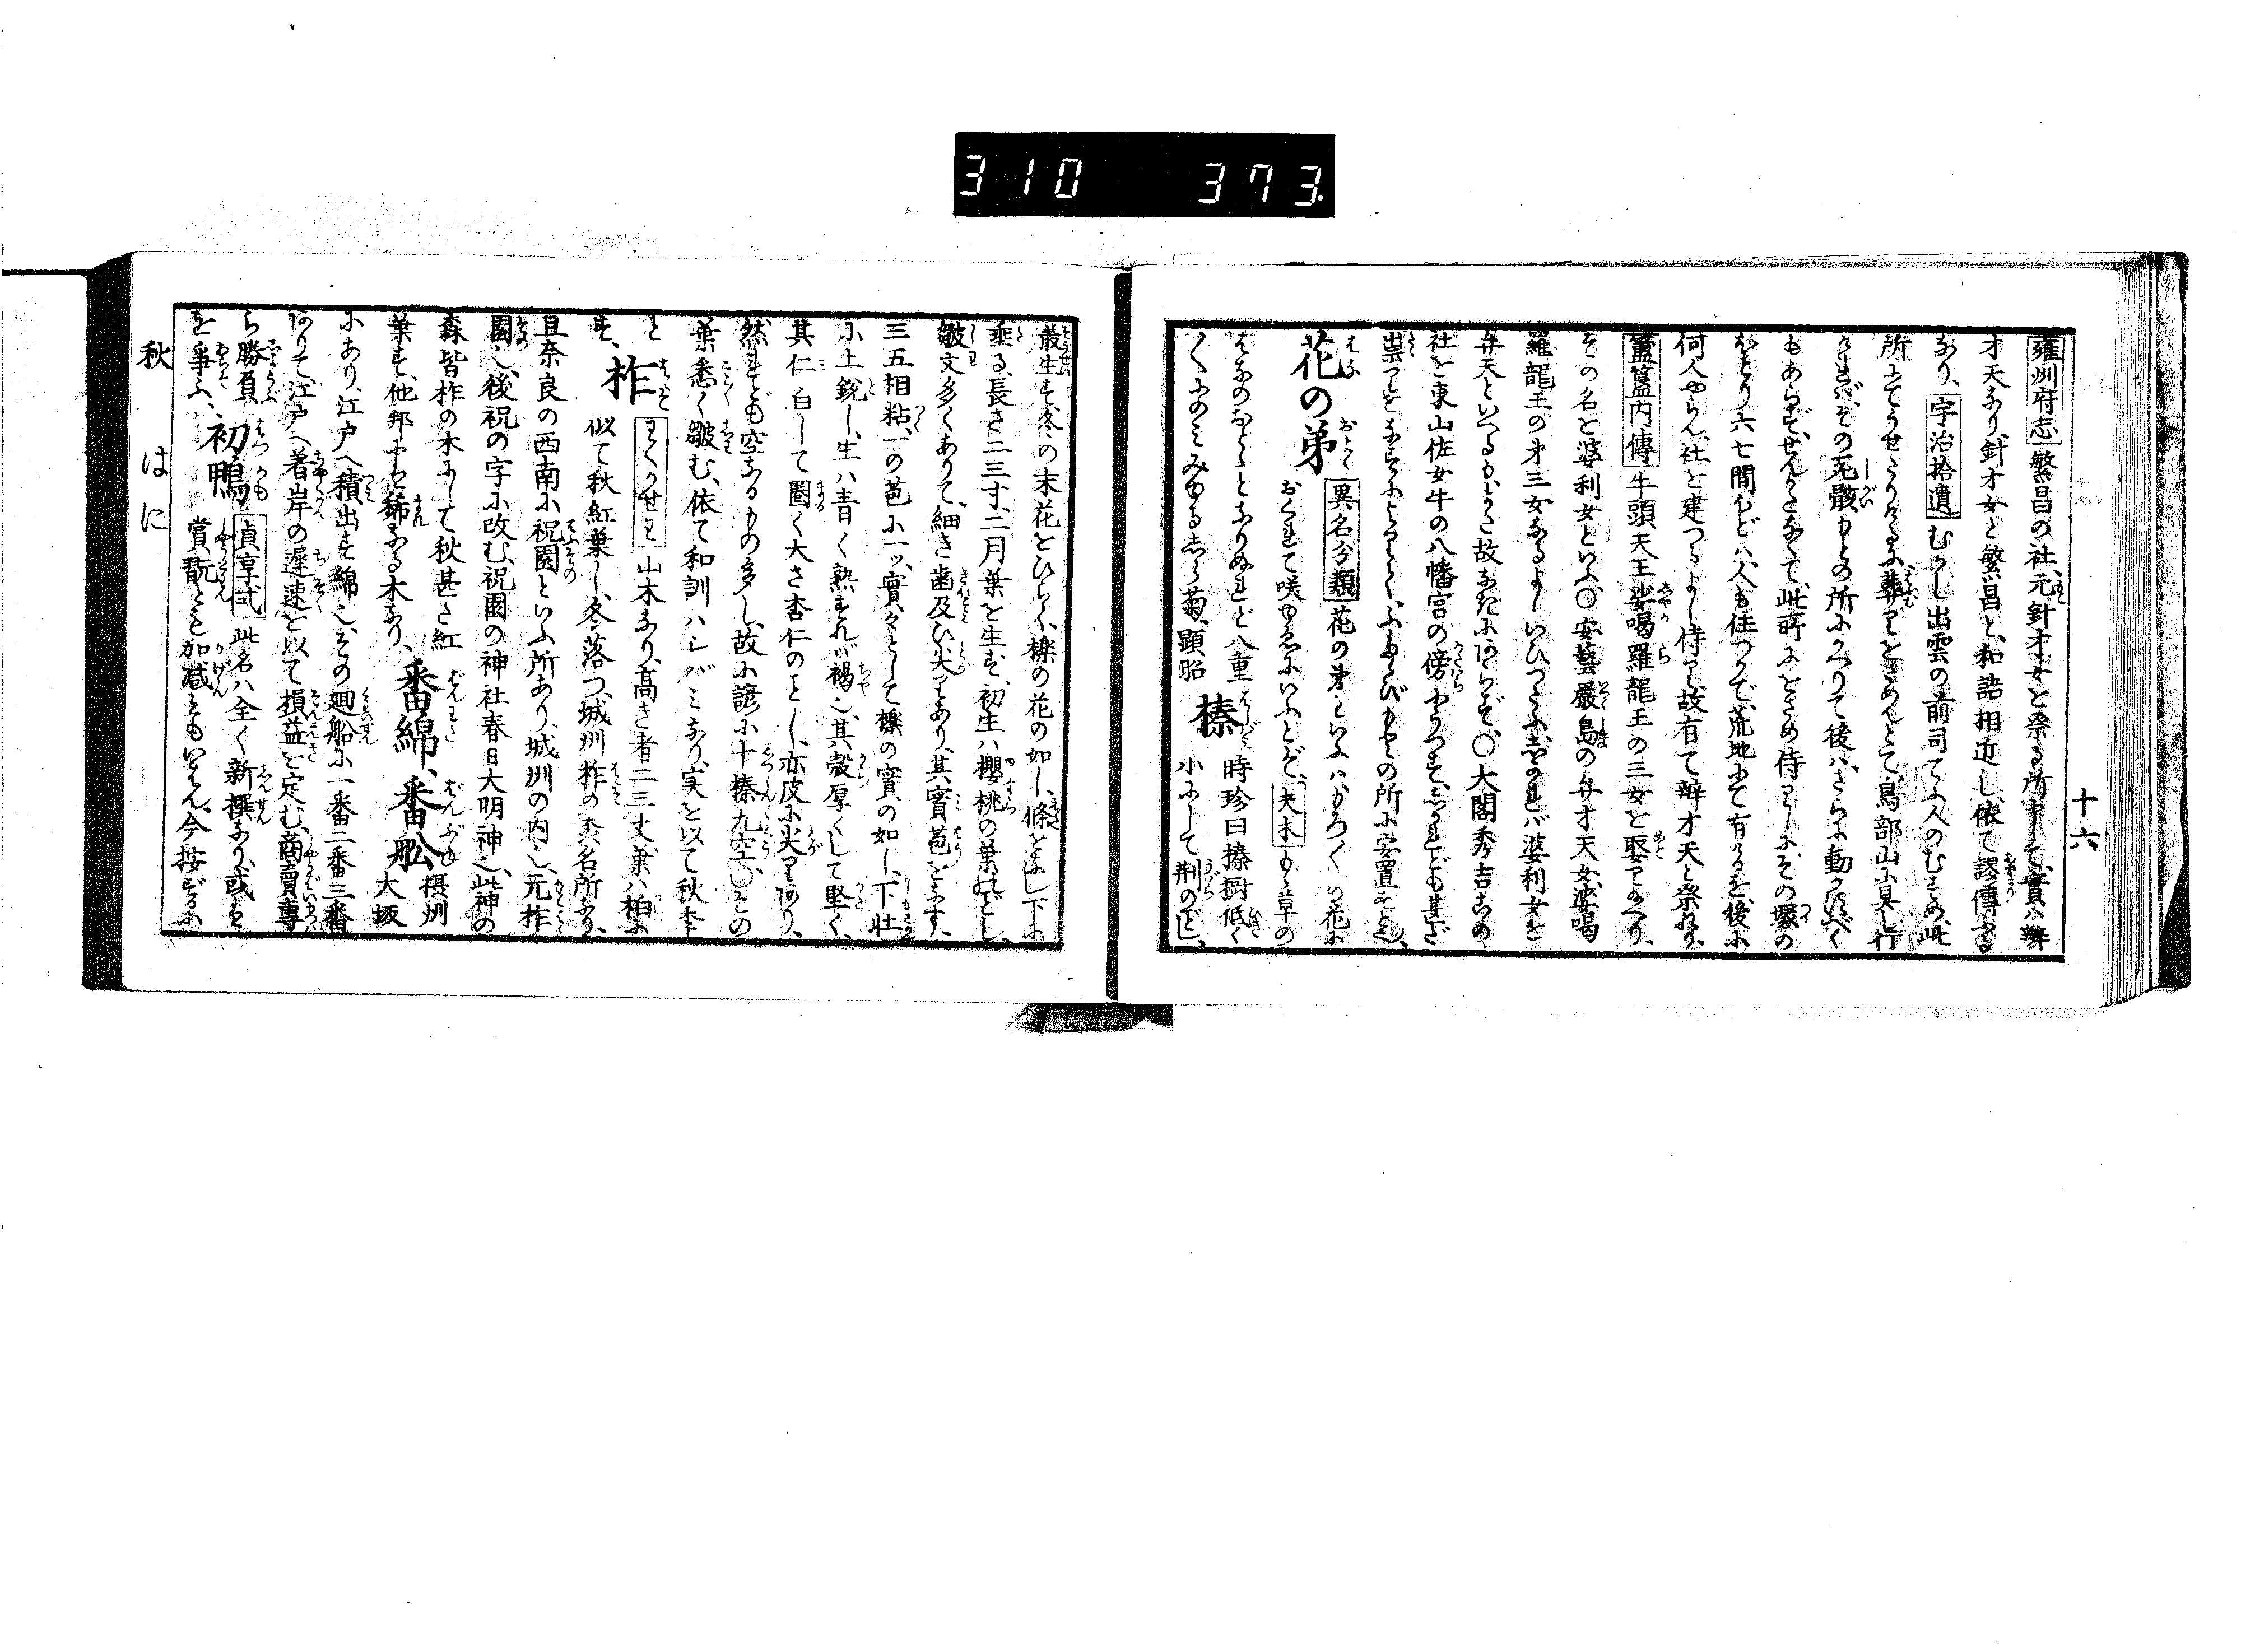 310 373
十六
雍州府志 繁昌の社、元針才女を祭る所にして、實ハ辨
才天なり、針才女と繁昌と、和語相近し、依て謬傳ふる
なり、宇治拾遺 むかし出雲の前司てふ人のむすめ、此
所にてうせたりけるに、葬りをさめんとて、鳥部山に具し行
もあらず、せんかたなくて、此所にをさめ侍りしに、その塚の
ほとり六七間ほどハ、人も住つかで、荒地にて有けるを、後に
何人やらん、社を建つるよし侍り、故有て辨才天と祭れり、
簠簋内傳 牛頭天王娑喝羅龍王の三女を娶りたまへり、
その名を婆利女といふ、〇安藝嚴島の弁才天女、娑喝
羅龍王の弟三女なるよしいひつたふ、しかれバ婆利女を
弁天といへるもまた故なきにあらず、〇大閤秀吉この
社を東山佐女牛の八幡宮の傍にうつす、しかれども甚だ
崇りをなすによりて、ふたゝびもとの所に安置すといふ、
花の弟 異名分類 花の弟といふハもろ〳〵の花に
おくれて咲ゆゑにいふとぞ、夫木 もゝ草の
はなのおとゝとなりぬれど八重
〳〵にのミみゆるしら菊、顕昭
榛 時珍曰榛樹低く
小にして荆のごとし、
叢生す、冬の末花をひらく、櫟の花の如し、條をなし下に
垂る、長さ二三寸、二月葉を生ず、初生ハ櫻桃の葉のごとし、
皺文多くありて、細き歯及び尖りあり、其實苞をなす、
三五相粘、一の苞に一ツ、實、々として櫟の實の如し、下壮
に上鋭し、生ハ青く熟すれバ褐也、其殻厚くして堅く、
其仁白して圓く大さ杏仁のごとし、亦皮に尖りあり、
然れども空なるもの多し、故に諺に十榛九空、〇その
葉悉く皺む、依て和訓ハシバミなり、実を以て秋季
と
す、
柞 わくかせわ 山木なり、高き者二三丈、葉ハ柏に
似て秋紅葉し、冬落つ、城州柞の杜名所なり、
且奈良の西南に祝園といふ所あり、城州の内也、元柞
園也、後祝の字に改む、祝園の神社春日大明神也、此神の
森皆柞の木にして秋甚た紅
葉す、他邦にも稀なる木なり、
番綿、番舩 摂州
大坂
にあり、江戸へ積出す綿也、その廻船に一番二番三番
ありて、江戸へ着岸の遲速を以て損益を定む、商賣專
ら勝負
を爭ふ、
初鴨 貞享式 此名ハ全く新撰なり、或は
賞翫とも加减ともいはん、今按ずるに
秋 はに